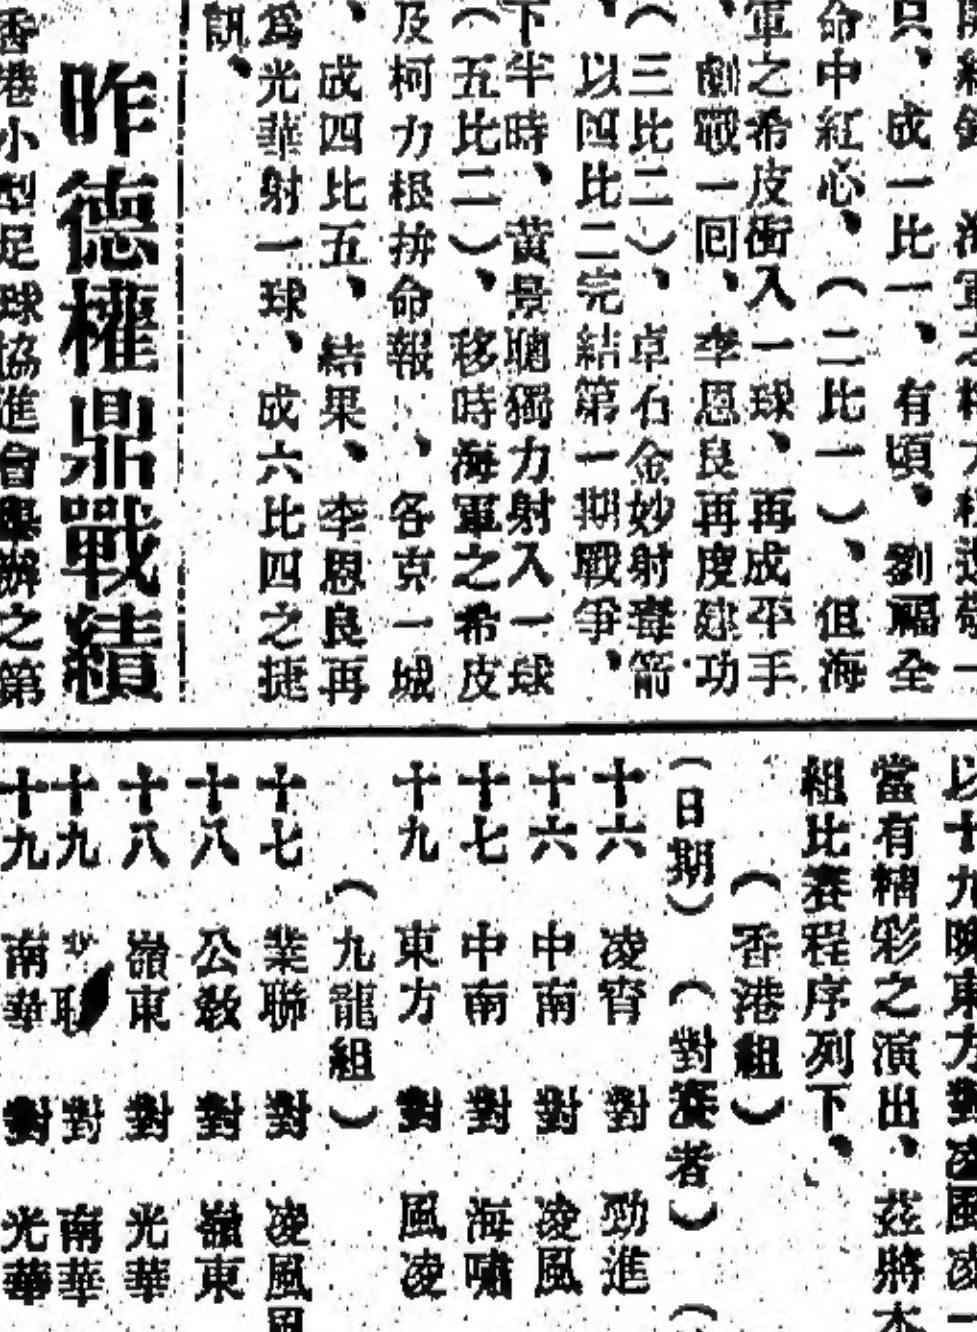 只、成一比一、有頃、劉福全
命中紅心、（二比一）、但海
軍之希皮衝入一球、再成平手
、劇戰一回、李恩良再度建功
（三比二）、卓石金妙射毒箭
、以四比二完結第一期戰爭、
下半時、黃景聰獨力射入一球
（五比二）、移時海軍之希皮
及柯力根拚命報、各克一城
、成四比五、結果、李恩良再
為光華射一球、成六比四之捷
訊、
昨德權鼎戰績
香港小型足球協進會舉辦之第
以十九晚東方對凌風凌一
當有精彩之演出、茲將本
組比賽程序列下、
（香港組）
（日期）（對賽者）（
十六 凌霄 對 勁進
十六 中南 對 凌風
十七 中南 對 海嘯
十九 東方 對 風凌
（九龍組）
十七 業聯 對 凌風
十八 公敎 對 嶺東
十八 嶺東 對 光華
十九 聯 對 南華
十九 南華 對 光華